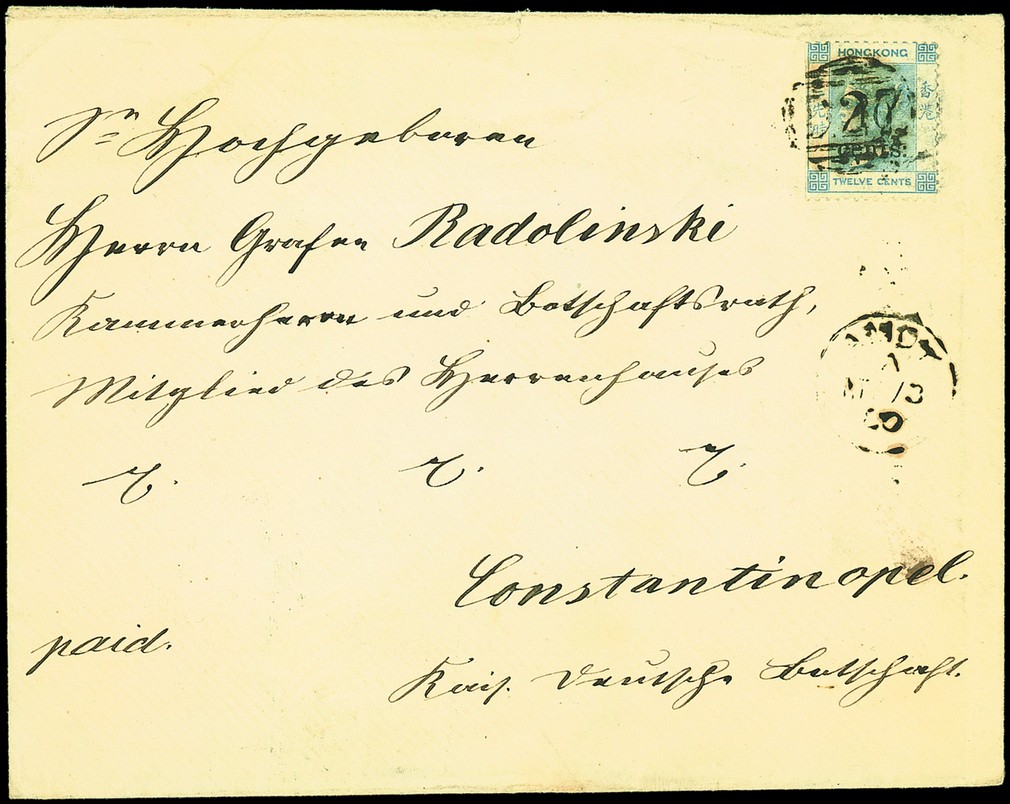 HONGKONG
香港
10
CENTS.
TWELVE CENTS
Sr Hochgeboren
Herrn Grafen Radolinski
Kammerherrn und Botschaftsrath,
Mitglied des Herrenhauses
AMOY
A
80
Constantinopel.
paid.
Kais. Deutsche Botschaft.